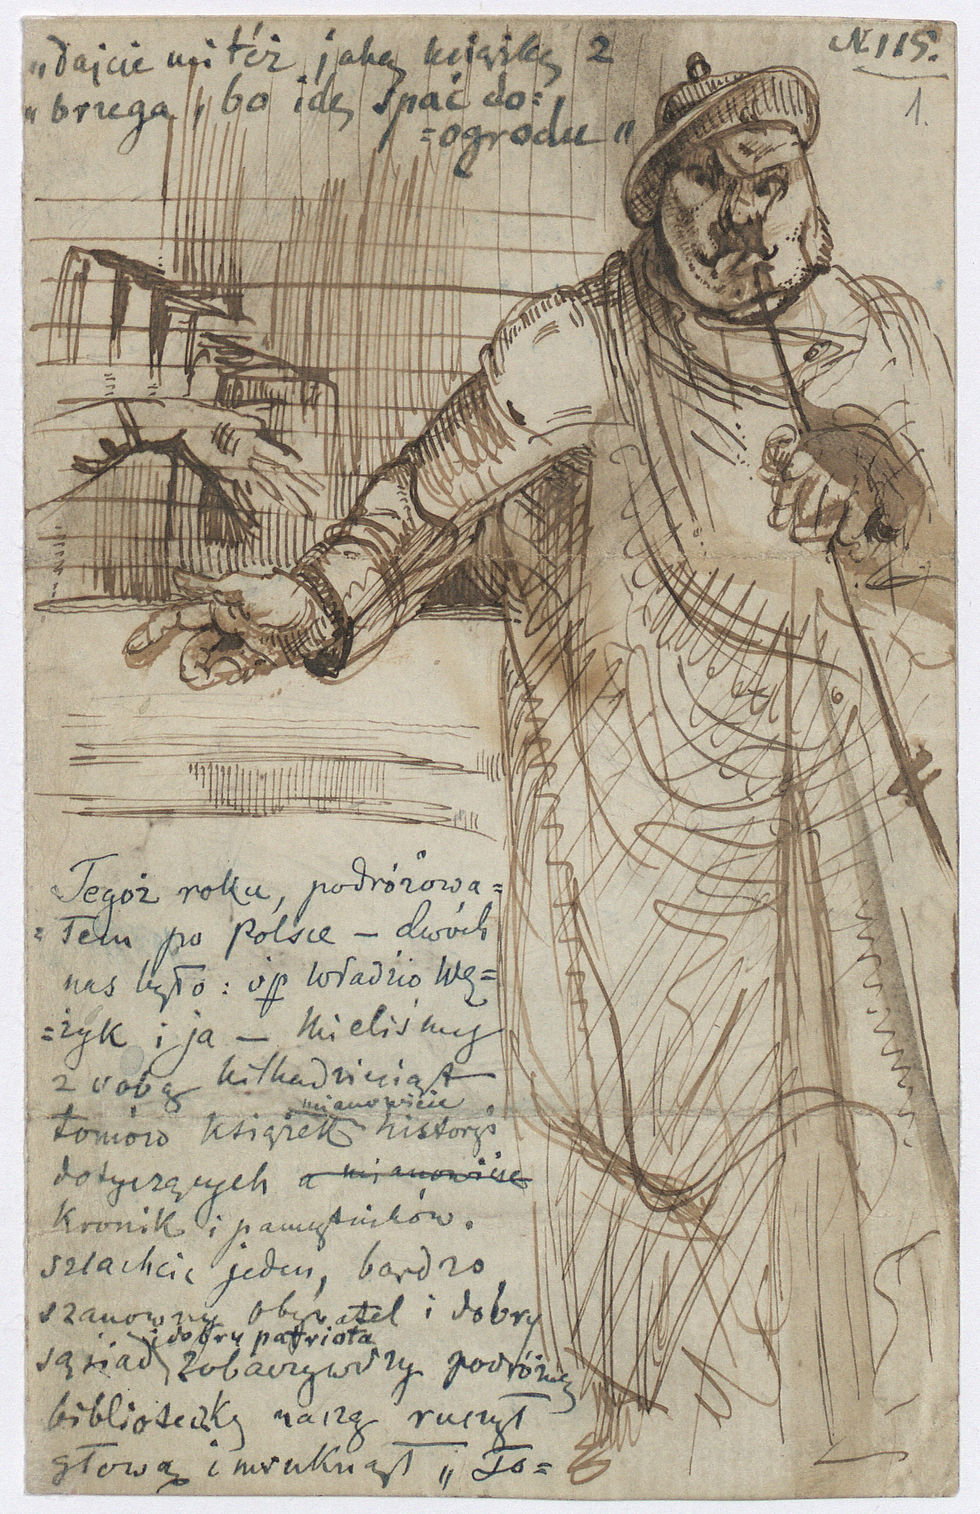 "dajcie mi też jaką książkę z
N. 115.
1.
"brzega, bo idę spać do=
=ogrodu"
Tegoż roku, podróżowa=
=łem po Polsce — dwóch
nas było: śp Władzio Wę=
=żyk i ja — mieliśmy
z sobą kilkadziesiąt
mianowicie
tomów książek history:
dotyczących a mianowicie
Kronik i pamiętników.
szlachcic jeden, bardzo
szanowny obywatel i dobry
i dobry patriota
sąsiad, zobaczywszy podróżną
biblioteczkę naszą ruszył
głową i mruknął „To=